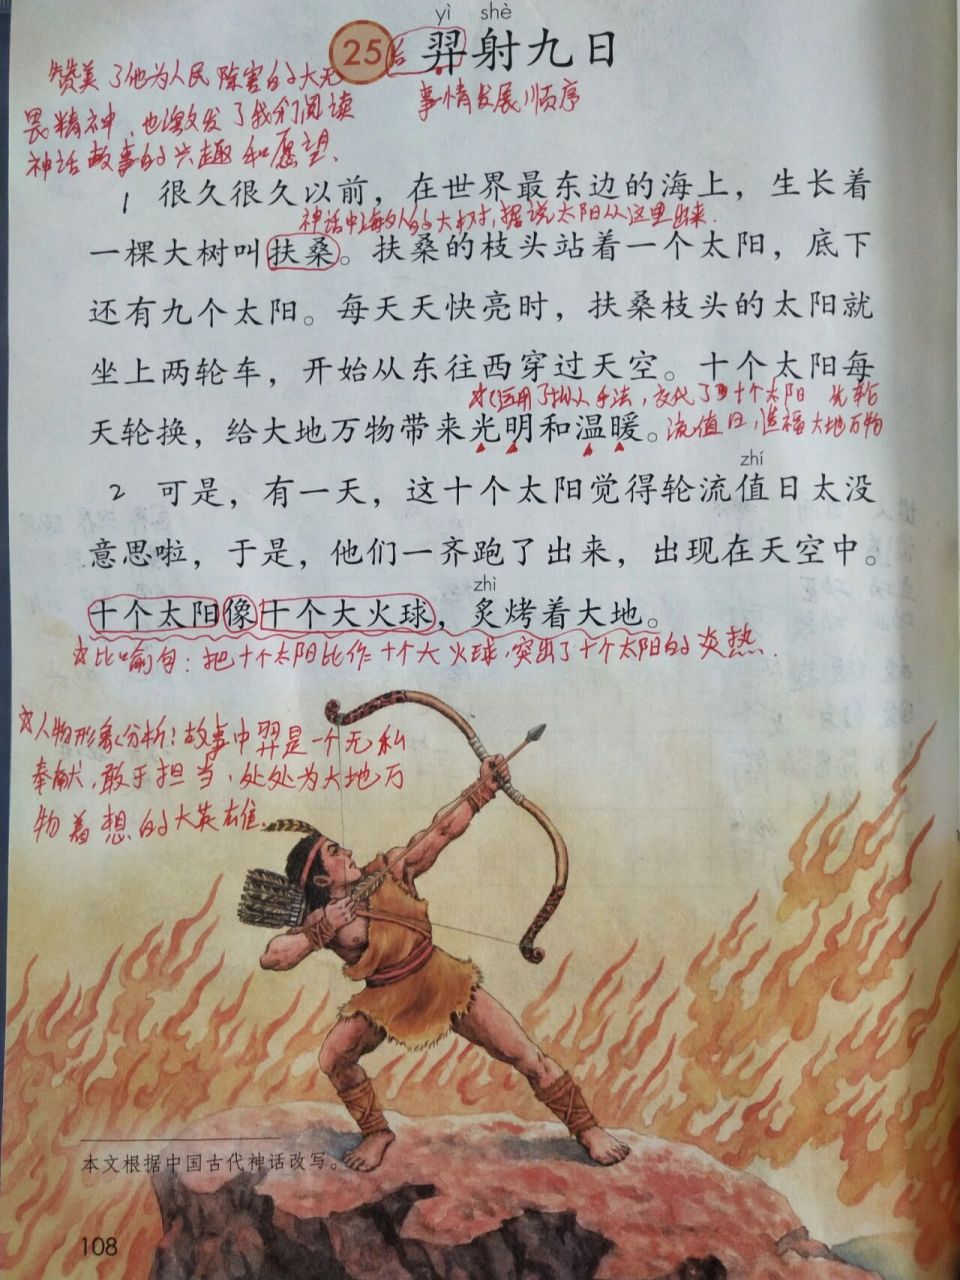 yì shè
25 后 羿射九日
赞美了他为人民除害的大无
畏精神，也激发了我们阅读
神话故事的兴趣和愿望.
事情发展顺序
1 很久很久以前，在世界最东边的海上，生长着
神话中海的大树，据说太阳从这里出来.
一棵大树叫扶桑。扶桑的枝头站着一个太阳，底下
还有九个太阳。每天天快亮时，扶桑枝头的太阳就
坐上两轮车，开始从东往西穿过天空。十个太阳每
☆运用了拟人手法，交代了十个太阳
天轮换，给大地万物带来光明和温暖。流值日，造福大地万物
zhí
2 可是，有一天，这十个太阳觉得轮流值日太没
意思啦，于是，他们一齐跑了出来，出现在天空中。
zhì
十个太阳像十个大火球，炙烤着大地。
☆比喻句：把十个太阳比作十个大火球，突出了十个太阳的炎热.
☆人物形象分析：故事中羿是一个无私
奉献，敢于担当，处处为大地万
物着想的大英雄.
本文根据中国古代神话改写。
108